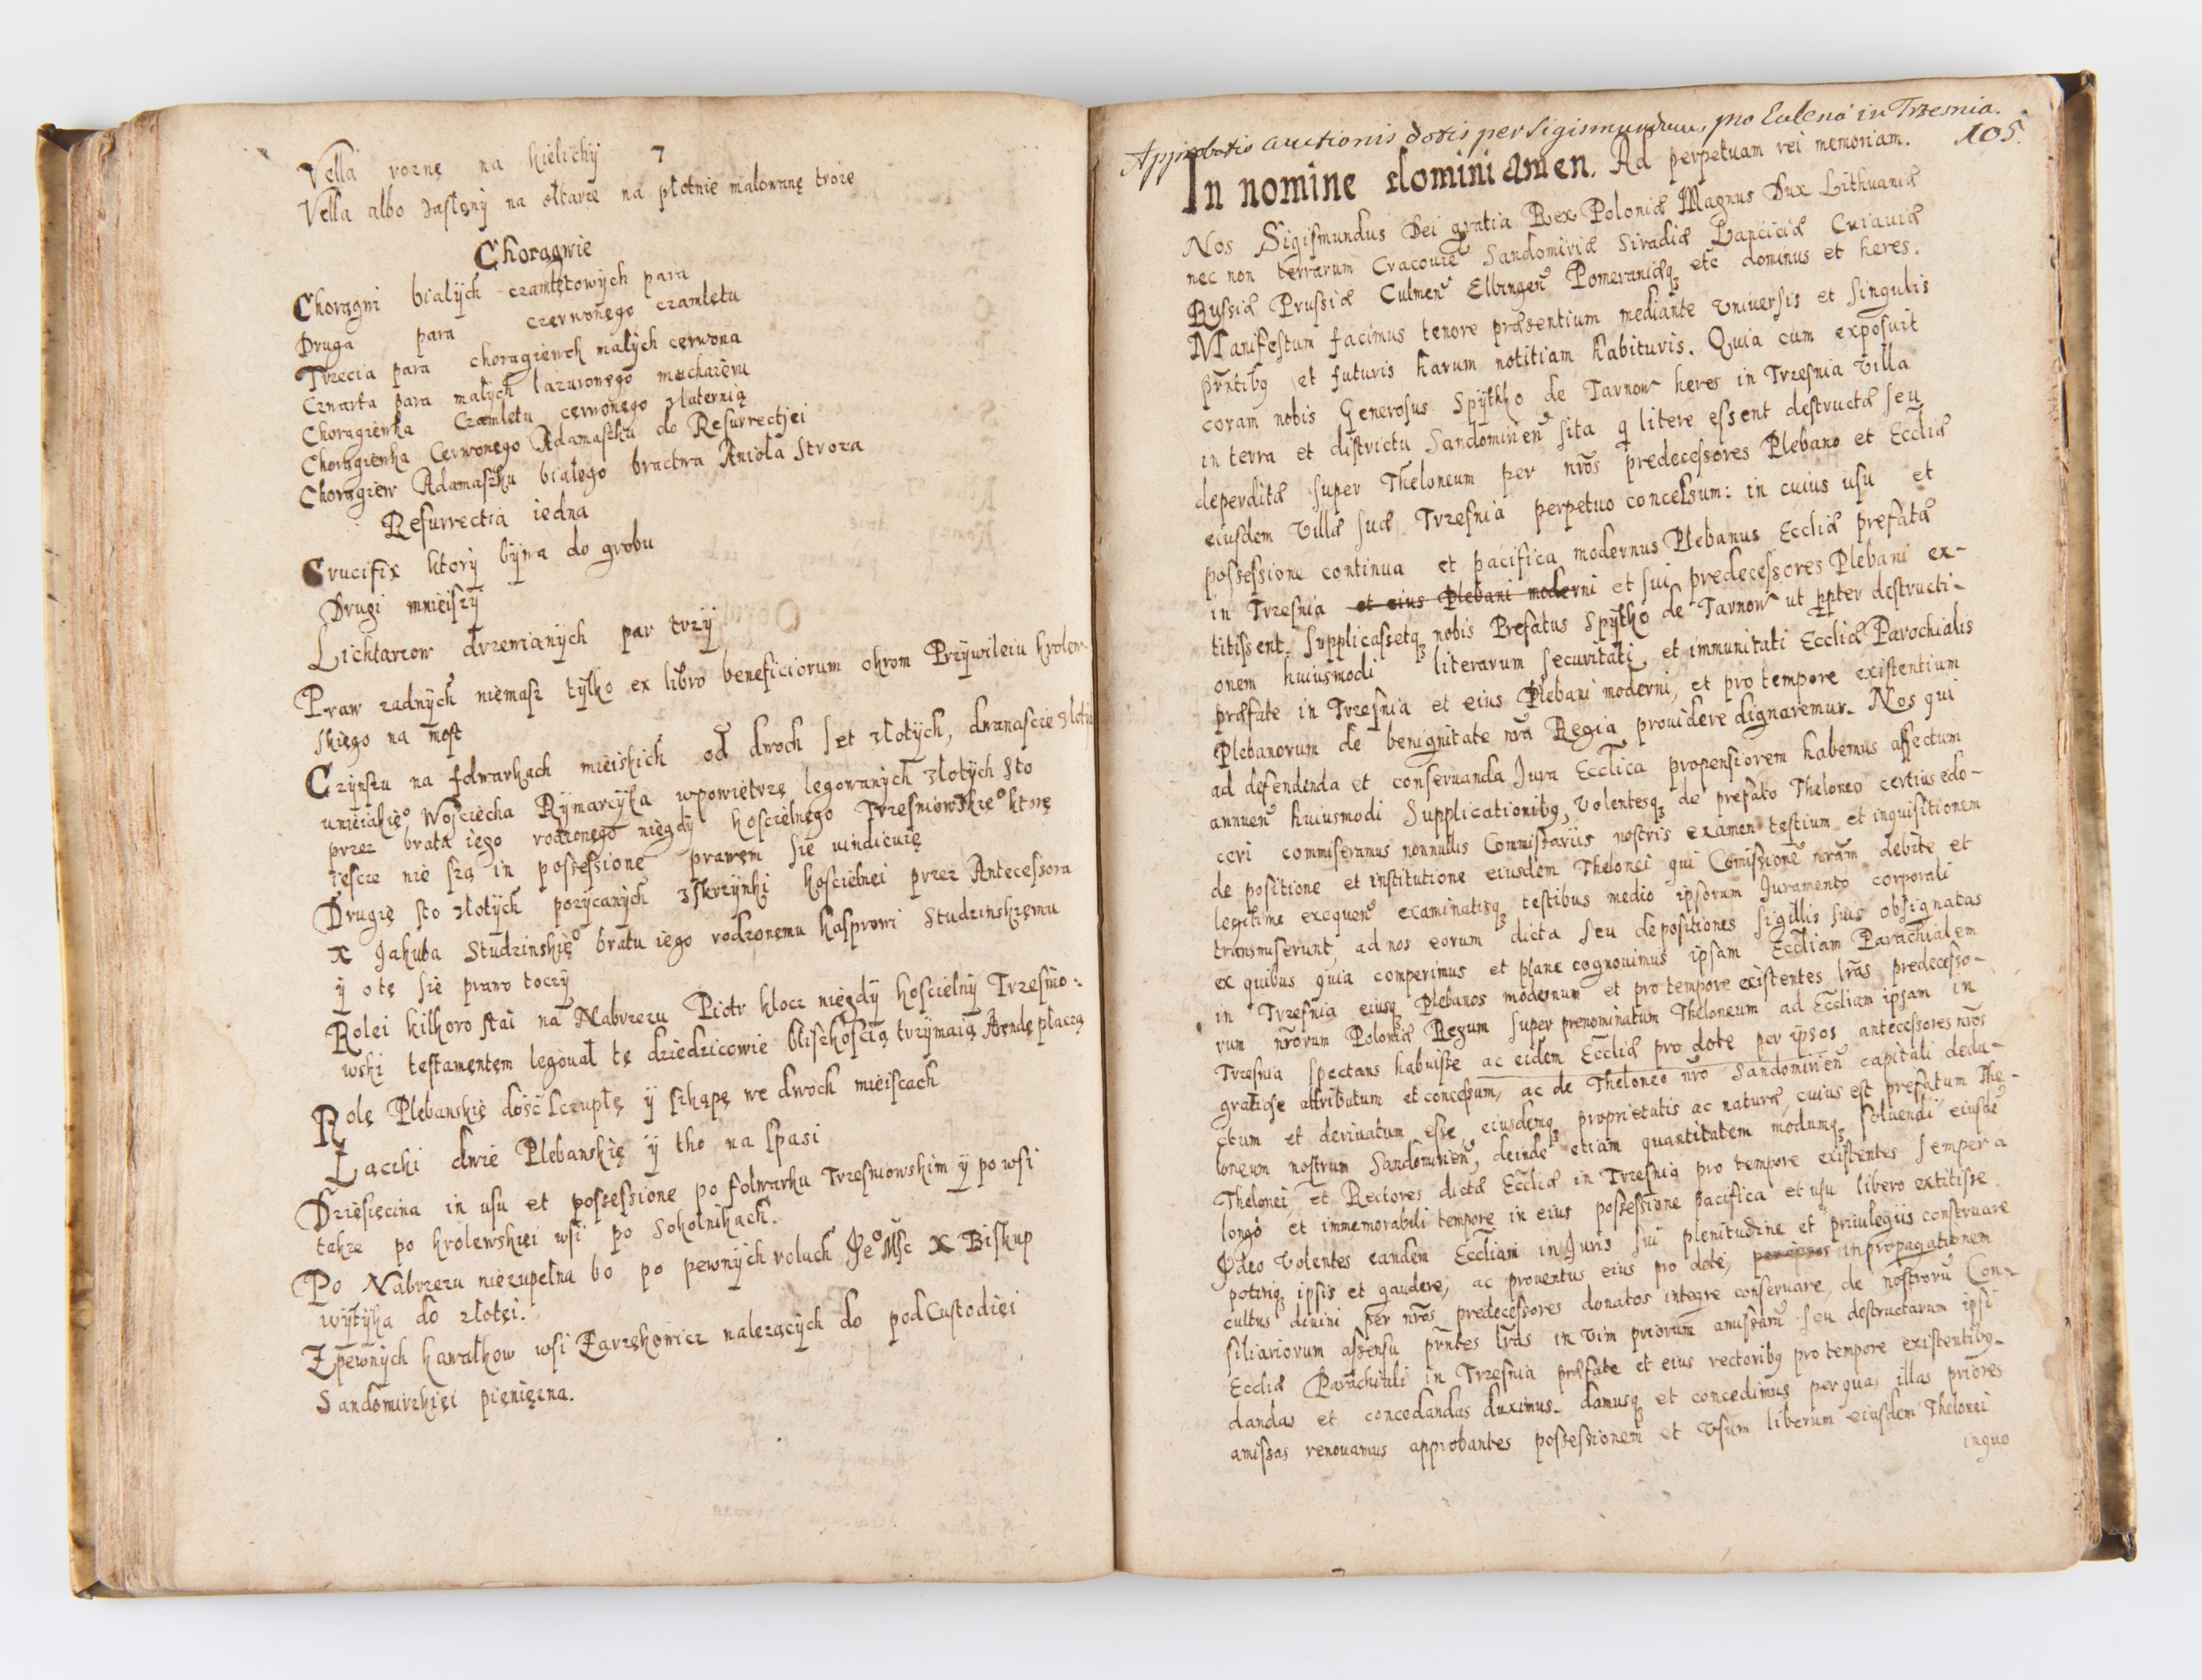 Vella rożnę na kielichy 7
Vella albo zasłony na ołtarze na płotnie malowanę troie
Choragwie
Choragwi białych czamletowych para
Druga para czerwonego czamletu
Trzecia para choragiewek małych cerwona
Czwarta para małych lazurowego muchaieru
Choragiewka Czamletu cerwonego zlaternią
Choragiewka Cerwonego Adamaszku do Resurrectiei
Choragiew Adamaszku białego bractwa Anioła Stroza
Resurrectia iedna
Crucifix ktory bywa do grobu
Drugi mnieiszy
Lichtarzow drzewianych par trzy
Praw zadnych niemasz tylko ex libro beneficiorum okrom Przywileiu krolew-
skiego na most
Czynszu na folwarkach mieiskich od dwoch set złotych, dwanascie złotych
unieiakięo Woyciecha Rymarczyka wpowietrzę legowanych złotych sto
przez brata iego rodzonego niegdy koscielnego Trzesniowskięo ktorę
iescze nie są in possessione prawem się vindicuię
Drugię sto złotych pozycanych zskrzynki koscielnei przez Antecessora
X Jakuba Studzinskięo bratu iego rodzonemu kasprowi Studzinskięmu
y otę się prawo toczy
Rolei kilkoro stai na Nabrzezu Piotr klocz niegdy koscielny Trzesnio-
wski testamentem legował tę dziedzicowie bliskoscią trzymaią Arendę płaczą
Rolę Plebanskię dość sczupłę y szkapę we dwoch mieiscach
Łaczki dwie Plebanskię y tho na spasi
Dziesięcina in usu et possessione po folwarku Trzesniowskim y po wsi
takze po krolewskiei wsi po Sokolnikach.
Po Nabrzezu niezupełna bo po pewnych rolach Jeo Msc X Biskup
wytyka do złotei.
Z pewnych kawałkow wsi Zarzekowicz nalezących do podCustodiei
Sandomirzkiei pieniezna.
Approbatio auctionis dotis per Sigismundum, pro Eccle͠na in Trzesnia.
105.
In nomine domini amen. Ad perpetuam rei memoriam.
Nos Sigismundus Dei gratia Rex Poloniæ Magnus Dux Lithuaniæ
nec non terrarum Cracovie͠ Sandomiriæ Siradiæ Lanciciæ Cuiaviæ
Russiæ Prussiæ Culmen͠ Elbingen͠ Pomeraniæq; etc dominus et heres.
Manifestum facimus tenore præsentium mediante Universis et singulis
pr͠ntibq et futuris harum notitiam habituris. Quia cum exposuit
coram nobis Generosus Spytko de Tarnow heres in Trzesnia Villa
in terra et districtu Sandomirien͠ sita q litere essent destructæ seu
deperditæ super Theloneum per nr͠os predecessores Plebano et Eccl͠iæ
eiusdem Villæ suæ Trzesnia perpetuo concessum: in cuius usu et
possessione continua et pacifica modernus Plebanus Eccl͠iæ prefatæ
in Trzesnia et eius Plebani moderni et sui predecessores Plebani ex-
titissent. Supplicassetq; nobis Prefatus Spytko de Tarnow ut ppter destructi-
onem huiusmodi literarum securitati et immunitati Eccl͠iæ Parochialis
præfate in Trzesnia et eius Plebani moderni, et pro tempore existentium
Plebanorum de benignitate nr͠a Regia providere dignaremur. Nos qui
ad defendenda et conservanda Jura Eccl͠ica propensiorem habemus affectum
annuen͠ huiusmodi Supplicationibq, Volentesq; de prefato Theloneo certius edo-
ceri commiseramus nonnullis Commissariis nostris examen testium et inquisitionem
de positione et institutione eiusdem Thelonei qui Comissione͠ nr͠am debite et
legitime exequen͠ examinatisq; testibus medio ipsorum Juramento corporali
transmiserunt, ad nos eorum dicta seu depositiones sigillis suis obsignatas
ex quibus quia comperimus et plane cognovimus ipsam Eccl͠iam Parachialem
in Trzesnia eiusq; Plebanos modernum et pro tempore existentes lr͠as predecesso-
rum nr͠orum Poloniæ Regum super prenominatum Theloneum ad Eccl͠iam ipsam in
Trzesnia spectans habuisse ac eidem Eccl͠iæ pro dote per ipsos antecessores nr͠os
gratiose attributum et concessum, ac de Theloneo nr͠o Sandomirien͠ capitali dedu-
ctum et derivatum esse, eiusdemq; proprietatis ac naturæ, cuius est prefatum The-
loneum nostrum Sandomirien͠, deinde etiam quantitatem modumq; solvendi eiusde͠
Thelonei, et Rectores dictæ Eccl͠iæ in Trzesnia pro tempore existentes semper a
longo et immemorabili tempore in eius possessione pacifica et usu libero extitisse.
Ideo volentes eandem Eccl͠iam in Juris sui plenitudine et privilegiis conservare
potiriq; ipsis et gaudere, ac proventus eius pro dote, per ipsos in propagationem
cultus divini per nr͠os predecessores donatos integre conservare, de nostroru͠ Con-
siliariorum assensu pr͠ntes lr͠as in vim priorum amissaru͠ seu destructarum ipsi
Eccl͠iæ Parachiali in Trzesnia præfate et eius rectoribq pro tempore existentibq-
dandas et concedandas duximus. damusq; et concedimus per quas illas priores
amissas renovamus approbantes possessionem et Usum liberum eiusdem Thelonei
inquo